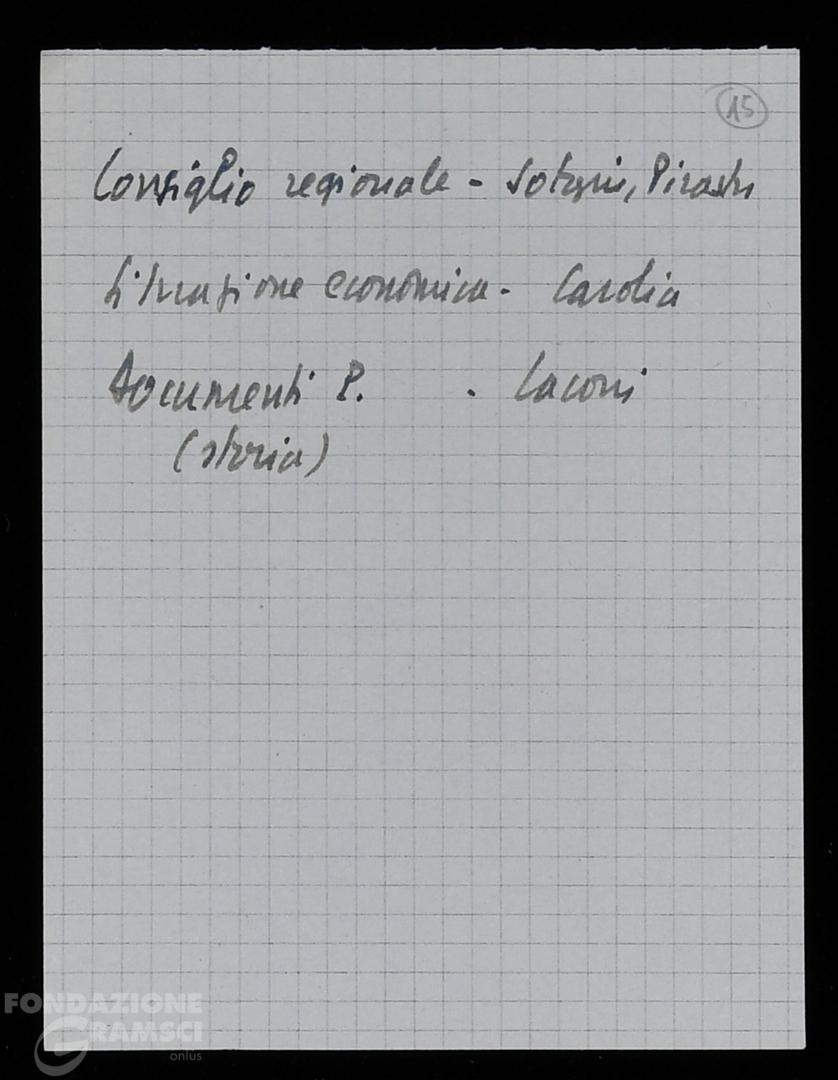 15
Consiglio regionale - Sotgiu, Pirastu
Situazione economica - Cardia
Documenti P. - Laconi
(storia)
FONDAZIONE
GRAMSCI
onlus